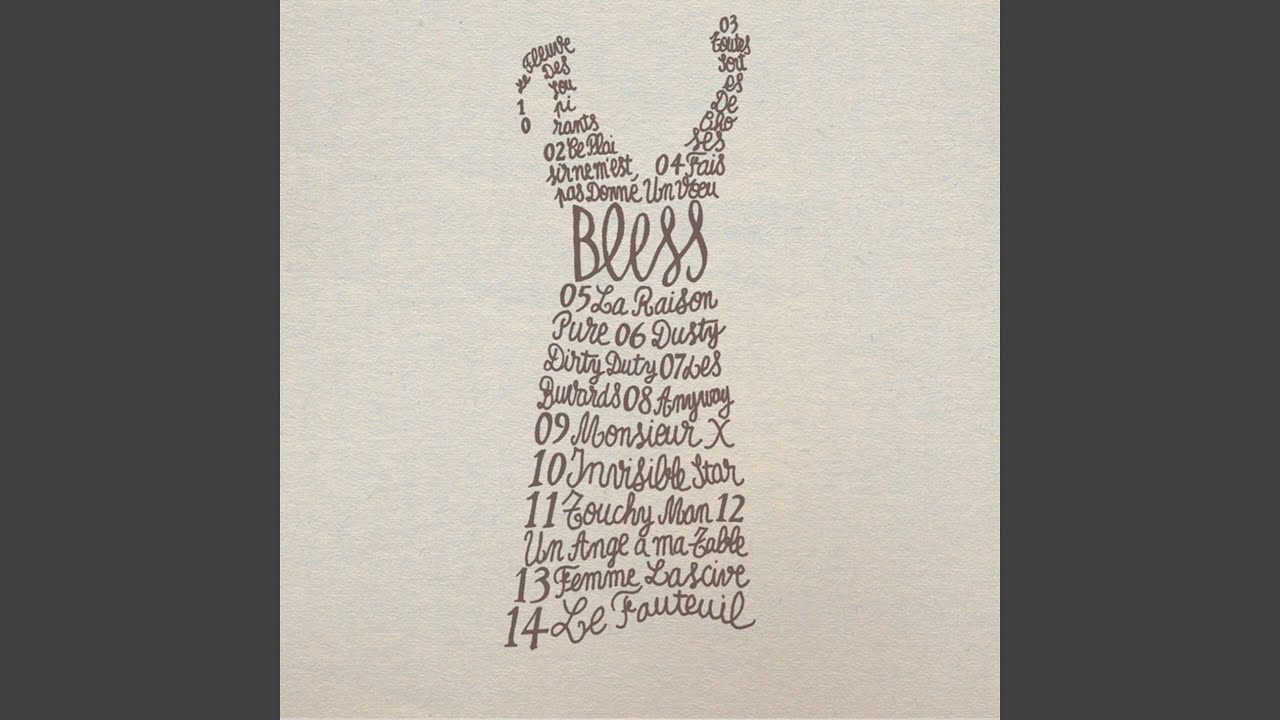 01 Le Fleuve
Des
Sou
pi
rants
02 Ce Plai
sir ne m'est
pas Donné
03
Toutes
Sort
es
De
Cho
ses
04 Fais
Un Vœu
Bless
05 La Raison
Pure 06 Dusty
Dirty Duty 07 Les
Buvards 08 Anyway
09 Monsieur X
10 Invisible Star
11 Touchy Man 12
Un Ange à ma Table
13 Femme Lascive
14 Le Fauteuil